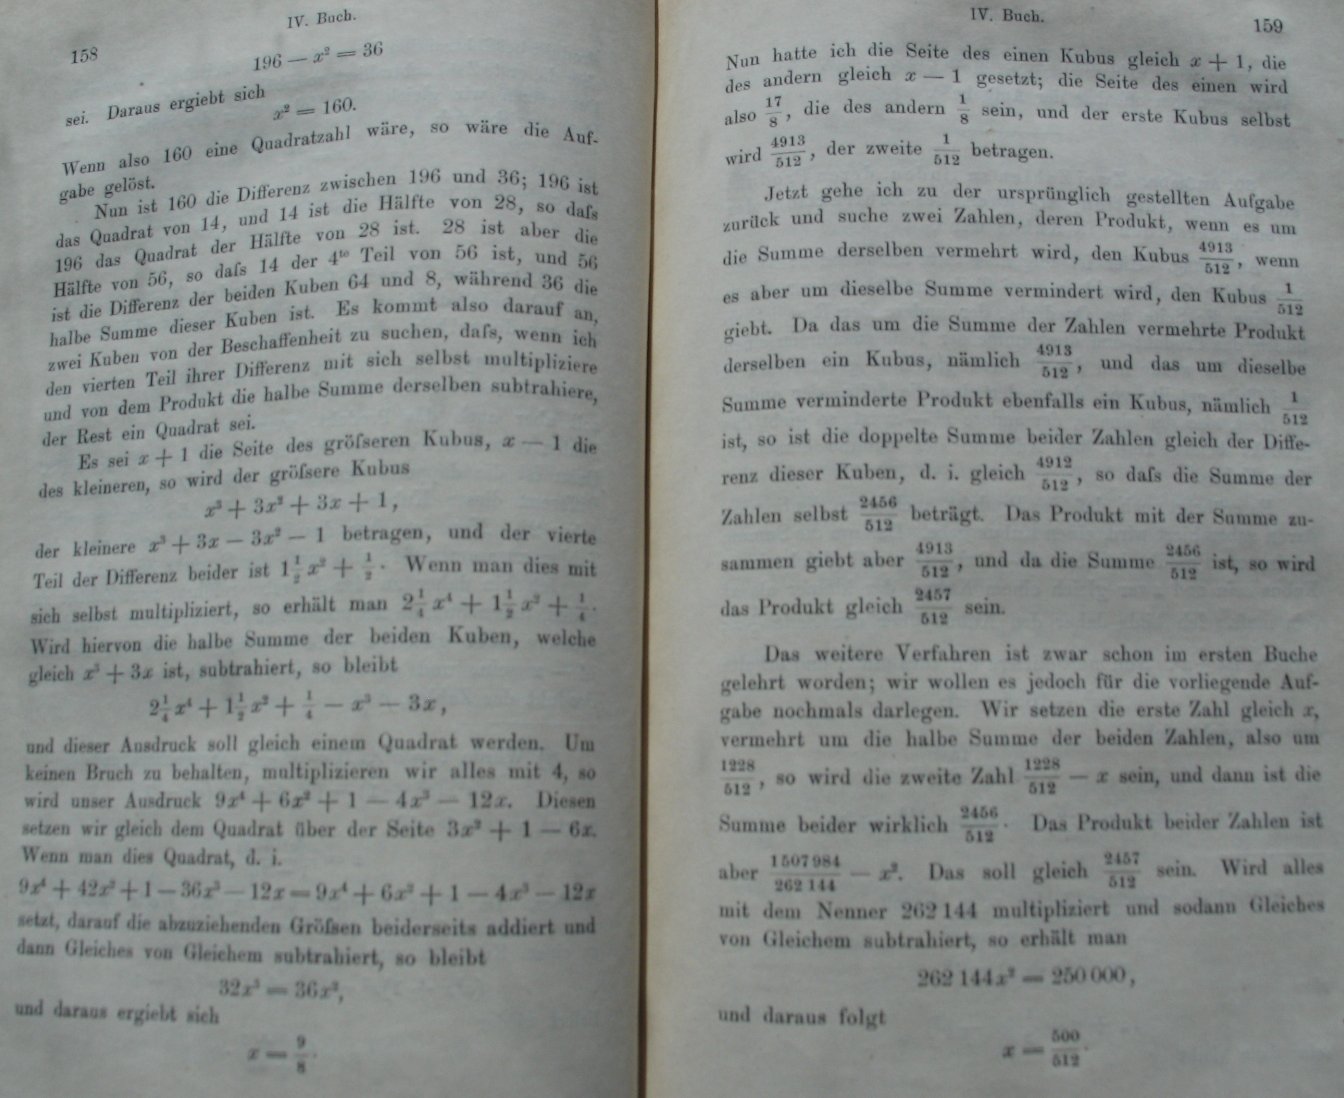 158
IV. Buch.
196 — x² = 36
sei. Daraus ergiebt sich
x² = 160.
Wenn also 160 eine Quadratzahl wäre, so wäre die Auf-
gabe gelöst.
Nun ist 160 die Differenz zwischen 196 und 36; 196 ist
das Quadrat von 14, und 14 ist die Hälfte von 28, so daſs
196 das Quadrat der Hälfte von 28 ist. 28 ist aber die
Hälfte von 56, so daſs 14 der 4te Teil von 56 ist, und 56
ist die Differenz der beiden Kuben 64 und 8, während 36 die
halbe Summe dieser Kuben ist. Es kommt also darauf an,
zwei Kuben von der Beschaffenheit zu suchen, daſs, wenn ich
den vierten Teil ihrer Differenz mit sich selbst multipliziere
und von dem Produkt die halbe Summe derselben subtrahiere,
der Rest ein Quadrat sei.
Es sei x + 1 die Seite des gröſseren Kubus, x — 1 die
des kleineren, so wird der gröſsere Kubus
x³ + 3x² + 3x + 1,
der kleinere x³ + 3x — 3x² — 1 betragen, und der vierte
Teil der Differenz beider ist 1 1/2 x² + 1/2. Wenn man dies mit
sich selbst multipliziert, so erhält man 2 1/4 x⁴ + 1 1/2 x² + 1/4.
Wird hiervon die halbe Summe der beiden Kuben, welche
gleich x³ + 3x ist, subtrahiert, so bleibt
2 1/4 x⁴ + 1 1/2 x² + 1/4 — x³ — 3x,
und dieser Ausdruck soll gleich einem Quadrat werden. Um
keinen Bruch zu behalten, multiplizieren wir alles mit 4, so
wird unser Ausdruck 9x⁴ + 6x² + 1 — 4x³ — 12x. Diesen
setzen wir gleich dem Quadrat über der Seite 3x² + 1 — 6x.
Wenn man dies Quadrat, d. i.
9x⁴ + 42x² + 1 — 36x³ — 12x = 9x⁴ + 6x² + 1 — 4x³ — 12x
setzt, darauf die abzuziehenden Gröſsen beiderseits addiert und
dann Gleiches von Gleichem subtrahiert, so bleibt
32x³ = 36x²,
und daraus ergiebt sich
x = 9/8.
IV. Buch.
159
Nun hatte ich die Seite des einen Kubus gleich x + 1, die
des andern gleich x — 1 gesetzt; die Seite des einen wird
also 17/8, die des andern 1/8 sein, und der erste Kubus selbst
wird 4913/512, der zweite 1/512 betragen.
Jetzt gehe ich zu der ursprünglich gestellten Aufgabe
zurück und suche zwei Zahlen, deren Produkt, wenn es um
die Summe derselben vermehrt wird, den Kubus 4913/512, wenn
es aber um dieselbe Summe vermindert wird, den Kubus 1/512
giebt. Da das um die Summe der Zahlen vermehrte Produkt
derselben ein Kubus, nämlich 4913/512, und das um dieselbe
Summe verminderte Produkt ebenfalls ein Kubus, nämlich 1/512
ist, so ist die doppelte Summe beider Zahlen gleich der Diffe-
renz dieser Kuben, d. i. gleich 4912/512, so daſs die Summe der
Zahlen selbst 2456/512 beträgt. Das Produkt mit der Summe zu-
sammen giebt aber 4913/512, und da die Summe 2456/512 ist, so wird
das Produkt gleich 2457/512 sein.
Das weitere Verfahren ist zwar schon im ersten Buche
gelehrt worden; wir wollen es jedoch für die vorliegende Auf-
gabe nochmals darlegen. Wir setzen die erste Zahl gleich x,
vermehrt um die halbe Summe der beiden Zahlen, also um
1228/512, so wird die zweite Zahl 1228/512 — x sein, und dann ist die
Summe beider wirklich 2456/512. Das Produkt beider Zahlen ist
aber 1507984/262144 — x². Das soll gleich 2457/512 sein. Wird alles
mit dem Nenner 262144 multipliziert und sodann Gleiches
von Gleichem subtrahiert, so erhält man
262144x² = 250000,
und daraus folgt
x = 500/512.